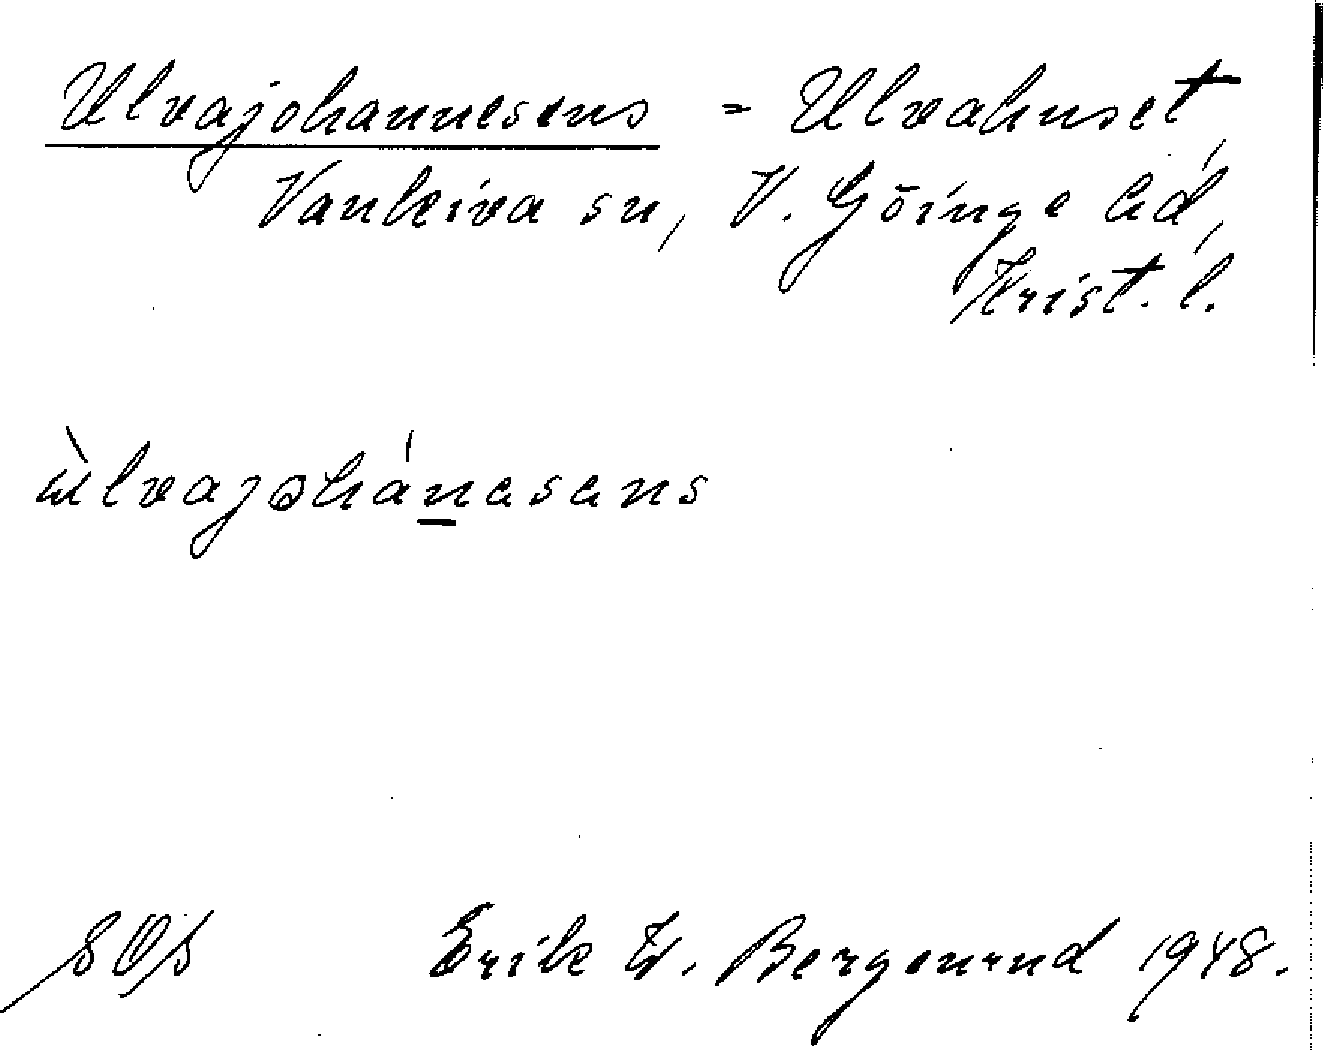 Ulvajohannesens = Ulvahuset,
Vankiva sn, V. Göinge hd,
Krist. l.
ùlvajohánasans
Erik W. Bergenrud 1948.